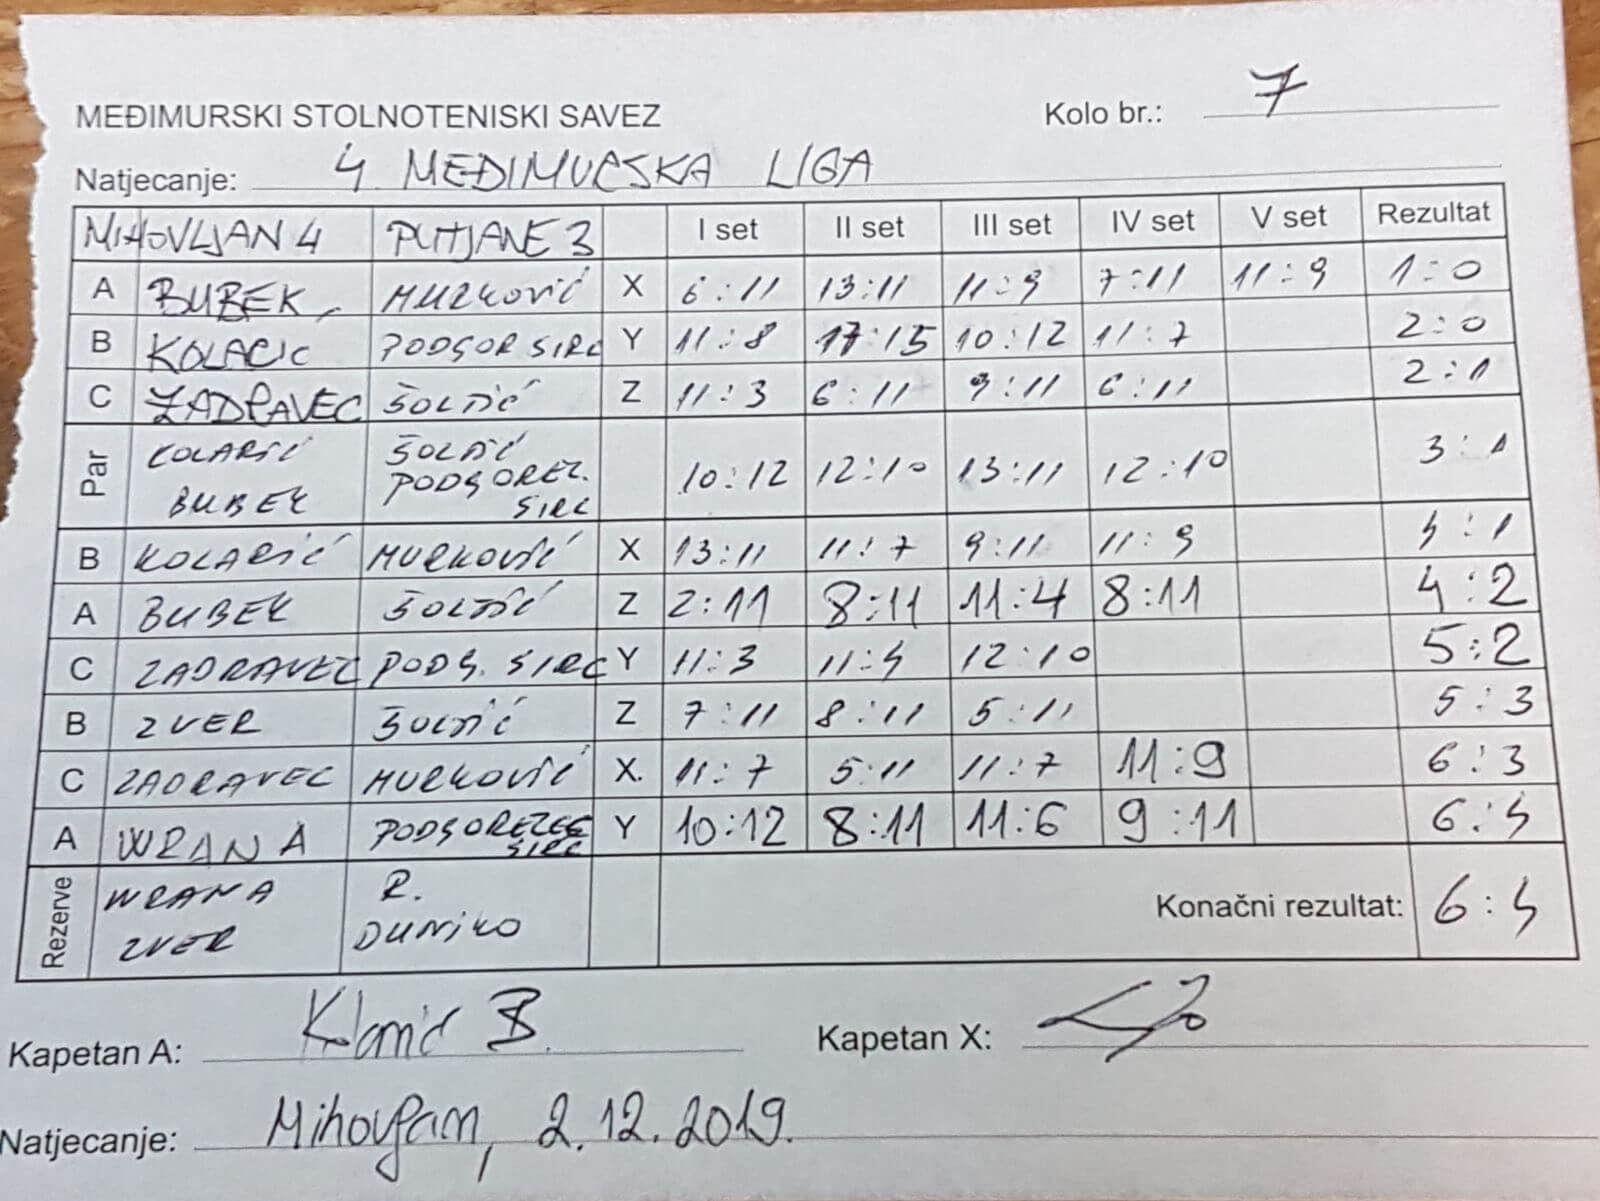 MEĐIMURSKI STOLNOTENISKI SAVEZ Kolo br.: 7
Natjecanje: 4. MEĐIMURSKA LIGA
MIHOVLJAN 4 PUTJANE 3 I set II set III set IV set V set Rezultat
A BUBEK MURKOVIĆ X 6:11 13:11 11:9 7:11 11:9 1:0
B KOLACIC PODGOR SIRC Y 11:8 17:15 10:12 11:7 2:0
C ZADRAVEC ŠOLTIĆ Z 11:3 6:11 9:11 6:11 2:1
Par KOLARIĆ BUBEK ŠOLTIĆ PODGOREZ. SIRC 10:12 12:10 13:11 12:10 3:1
B KOLARIĆ MURKOVIĆ X 13:11 11:7 9:11 11:9 4:1
A BUBEK ŠOLTIĆ Z 2:11 8:11 11:4 8:11 4:2
C ZADRAVEC PODG. SIRC Y 11:3 11:4 12:10 5:2
B ZVER ŠOLTIĆ Z 7:11 8:11 5:11 5:3
C ZADRAVEC MURKOVIĆ X. 11:7 5:11 11:7 11:9 6:3
A WRANA PODGOREZEC SIRC Y 10:12 8:11 11:6 9:11 6:4
Rezerve WRANA ZVER R. DUNIKO Konačni rezultat: 6:4
Kapetan A: B. Kapetan X:
Natjecanje: Mihovljan, 2.12.2019.